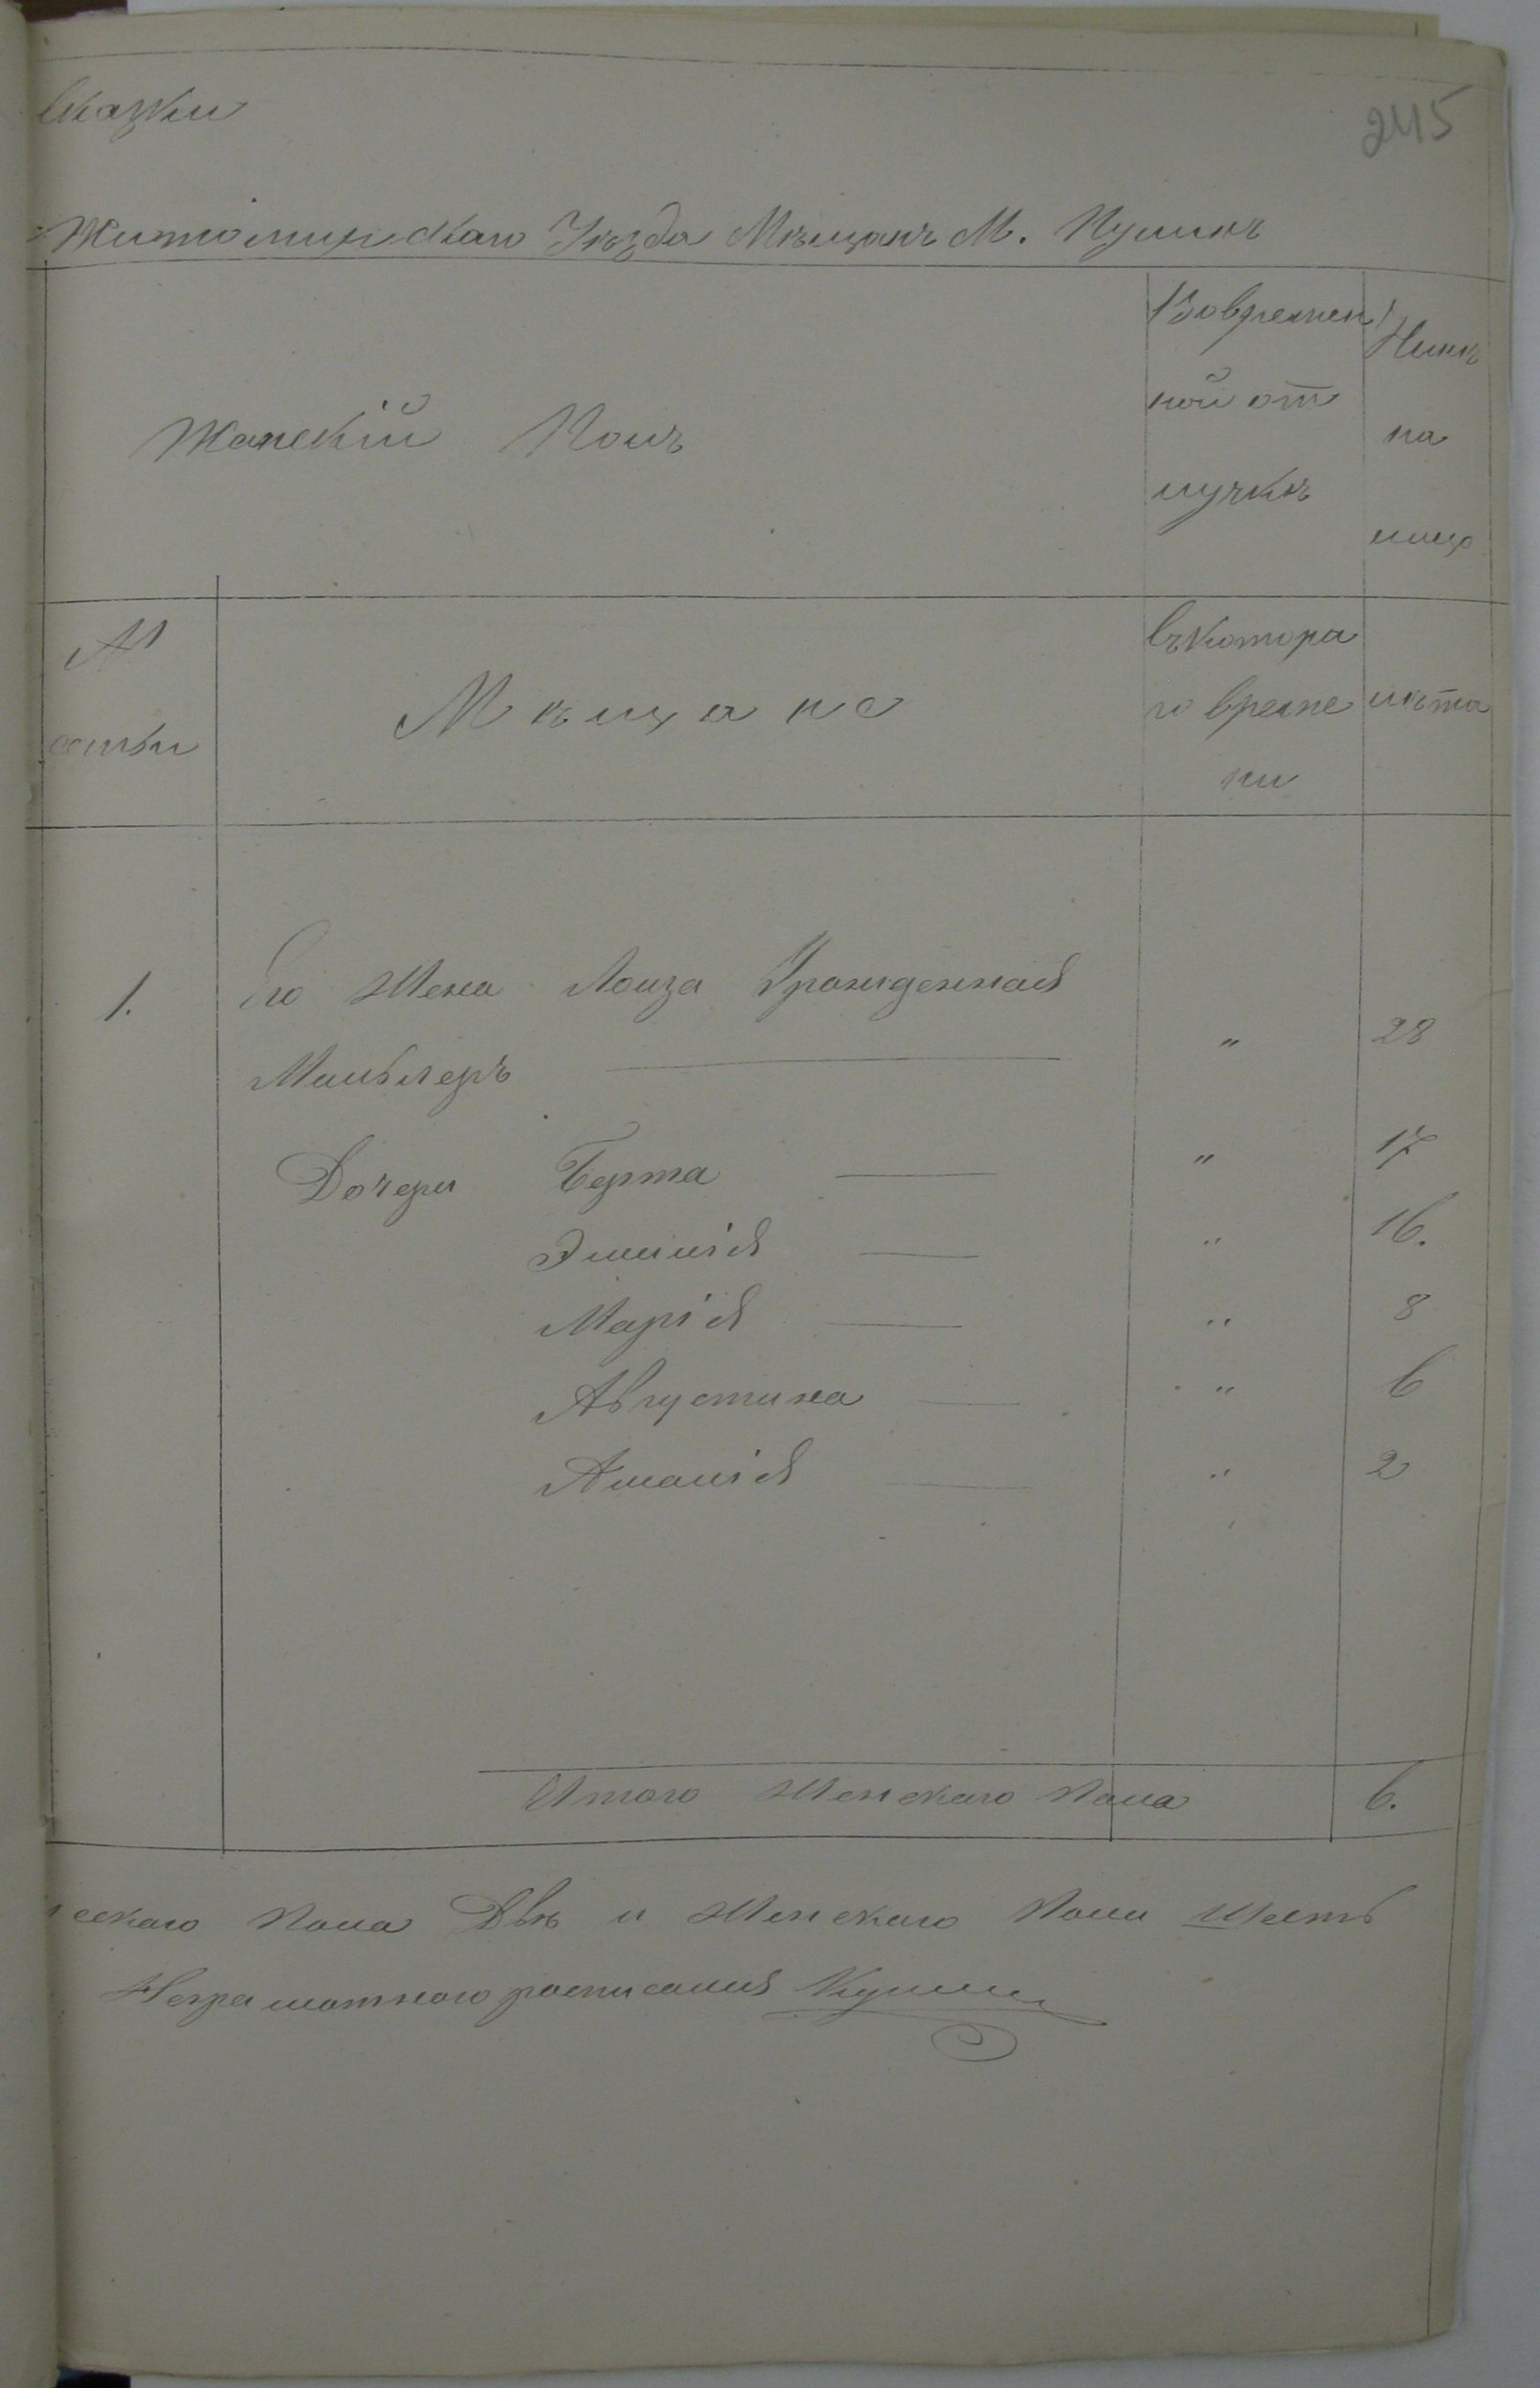 сказки
245
Житомирскаго Уѣзда Мѣщанъ М. Пулинъ
Женскій Полъ
Во времен
ной от
лучкѣ
Нынѣ
на
лицо
№
семьи
Мѣщане
Съ котора
го време
ни
лѣта
1. Его Жена Лоиза Урожденная
Мильлеръ — " 28
Дочери Берта — " 17
Эмилія — " 16.
Марія — " 8
Августина — " 6
Амалія — " 2
Итого Женскаго Пола 6.
ескаго Пола Двѣ и Женскаго Пола Шесть
Неграмотнаго росписался